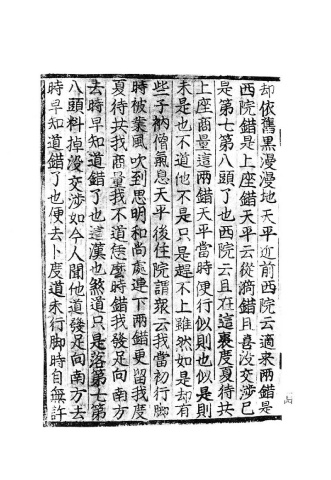 却依舊黑漫漫地天平近前西院云適來兩錯是
西院錯是上座錯天平云從漪錯且喜沒交涉已
是第七第八頭了也西院云且在這裏度夏待共
上座商量這兩錯天平當時便行似則也似是則
未是也不道他不是只是趕不上雖然如是却有
些子衲僧氣息天平後住院謂衆云我當初行脚
時被業風吹到思明和尚處連下兩錯更留我度
夏待共我商量我不道恁麼時錯我發足向南方
去時早知道錯了也這漢也煞道只是落第七第
八頭料掉沒交涉如今人聞他道發足向南方去
時早知道錯了也便去卜度道未行脚時自無許